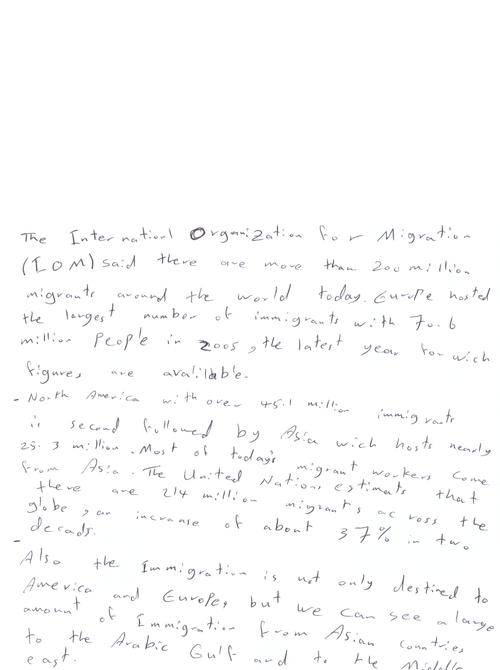 The Internationl Organization for Migration
(IOM) said there are more than 200 million
migrants around the world today. Europe hosted
the largest number of immigrants with 70.6
million People in 2005, the latest year for wich
figures are avalilable.
- North America with over 45.1 million immigrants
is second followed by Asia wich hosts nearly
25.3 million. Most of today's migrant workers come
from Asia. The United Nations estimats that
there are 214 million migrants ac ross the
globe, an increase of about 37% in two
decads.
-
Also the Immigration is not only destined to
America and Europe, but we can see a large
amount of Immigration from Asian countries
to the Arabic Gulf and to the Middle
east.